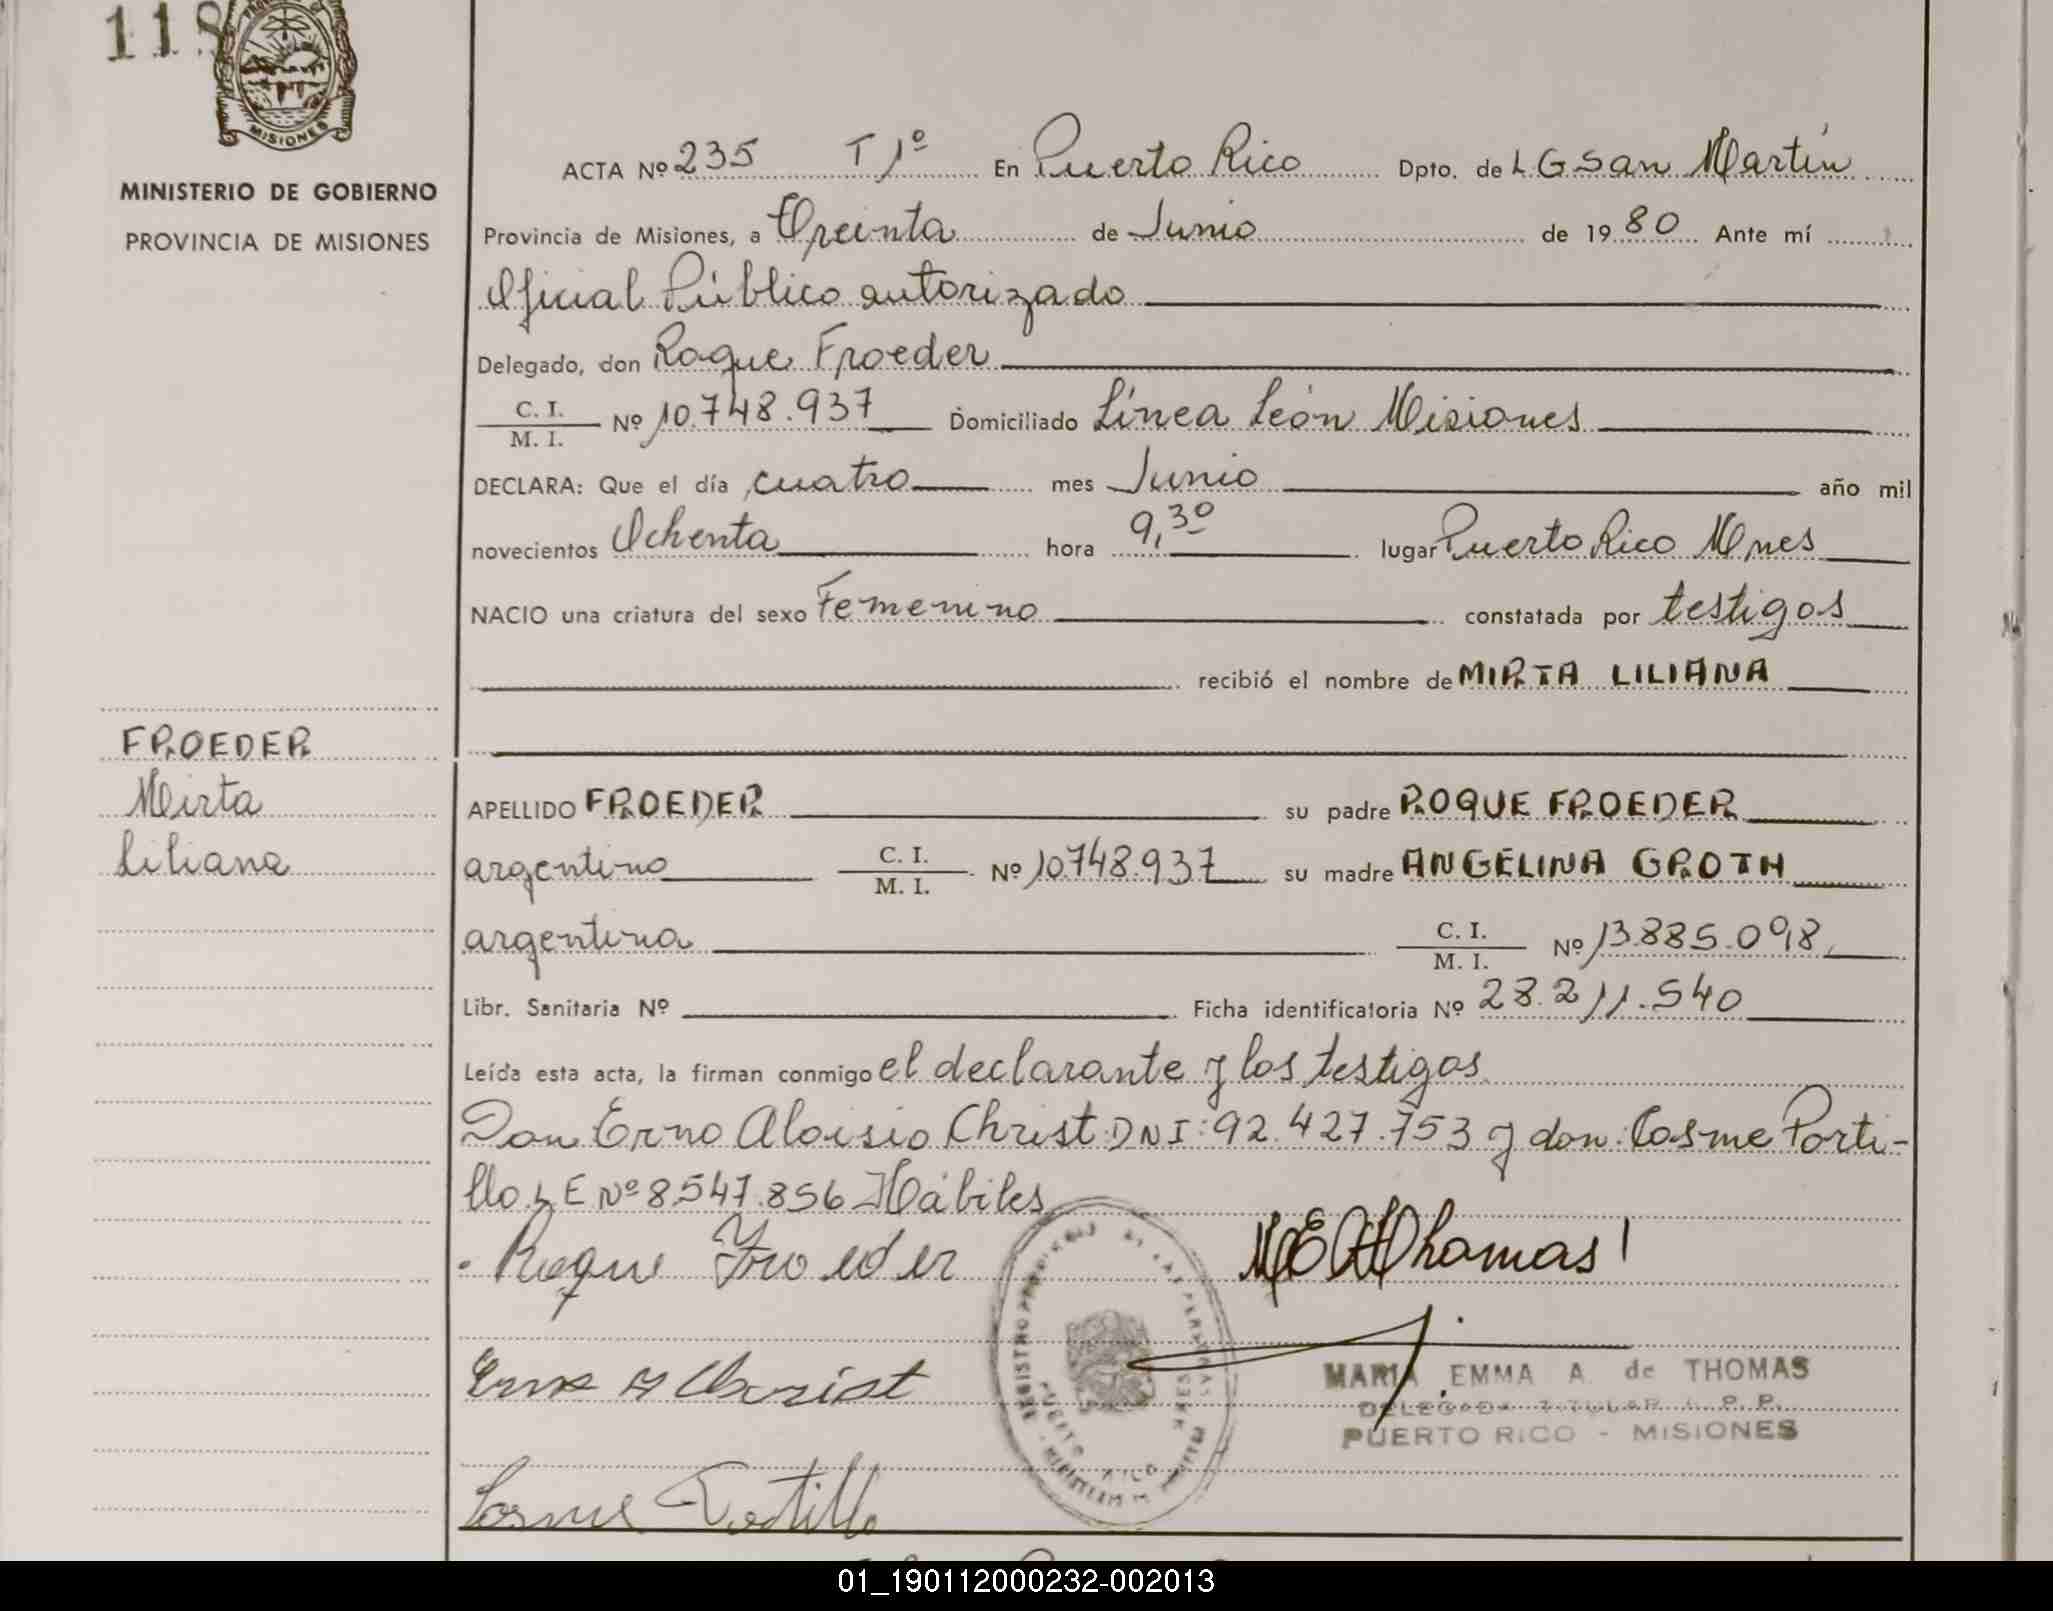 118
MISIONES
MINISTERIO DE GOBIERNO
PROVINCIA DE MISIONES
ACTA Nº 235 T 1º En Puerto Rico Dpto. de L G San Martín
Provincia de Misiones, a Treinta de Junio de 1980 Ante mí
Oficial Público autorizado
Delegado, don Roque Froeder
C. I. / M. I. Nº 10.748.937 Domiciliado Línea León Misiones
DECLARA: Que el día cuatro mes Junio año mil
novecientos Ochenta hora 9,30 lugar Puerto Rico Mnes
NACIO una criatura del sexo Femenino constatada por testigos
recibió el nombre de MIRTA LILIANA
FROEDER
Mirta
Liliana
APELLIDO FROEDER su padre ROQUE FROEDER
argentino C. I. / M. I. Nº 10.748.937 su madre ANGELINA GROTH
argentina C. I. / M. I. Nº 13.885.098
Libr. Sanitaria Nº Ficha identificatoria Nº 28.211.540
Leída esta acta, la firman conmigo el declarante y los testigos
Don Erno Aloisio Christ DNI: 92.427.753 y don Cosme Porti-
llo L E Nº 8.547.856 Hábiles
Roque Froeder
M E A Thomas
Erno A Christ
MARIA EMMA A. de THOMAS
DELEGADA TITULAR R. P. P.
PUERTO RICO - MISIONES
Cosme Portillo
REGISTRO PROVINCIAL DE LAS PERSONAS
PUERTO RICO
01_190112000232-002013